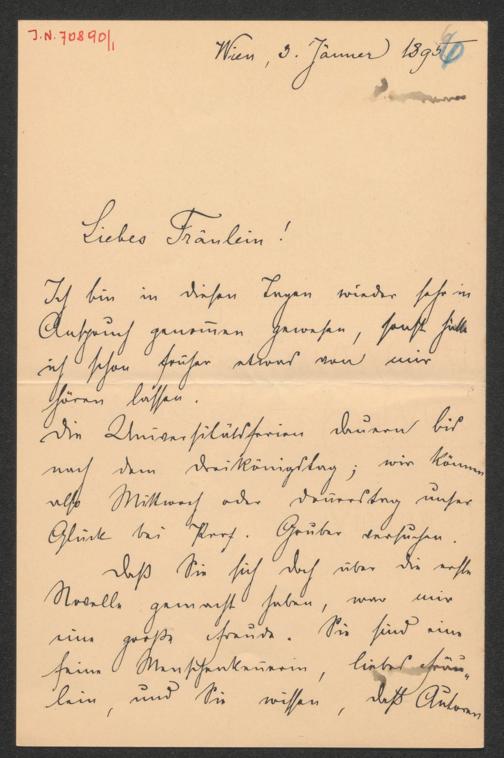 J.N. 70890/1
Wien, 3. Jänner 1895
6
Liebes Fräulein!
Ich bin in diesen Tagen wieder sehr in
Anspruch genom̅en gewesen, sonst hätte
ich schon früher etwas von mir
hören lassen.
Die Universitätsferien dauern bis
nach dem Dreikönigstag; wir können
also Mittwoch oder Donnerstag unser
Glück bei Prof. Gruber versuchen.
Daß Sie sich doch über die erste
Novelle gemacht haben, war mir
eine große Freude. Sie sind eine
feine Menschenken̅erin, liebes Fräu„
lein, und Sie wissen, daß Autoren